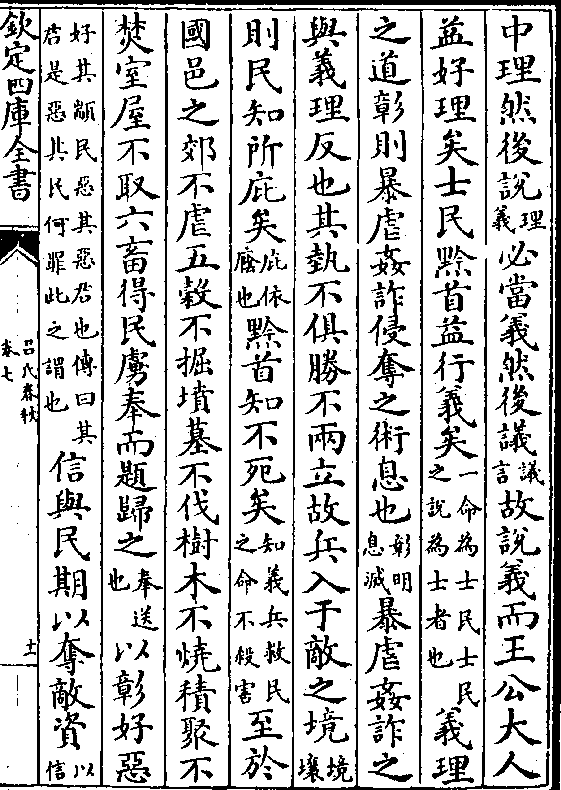 中理然後說理義必當義然後議議言故說義而王公大人
益好理矣士民黔首益行義矣一命為士民士民之說為士者也義理
之道彰則暴虐姦詐侵奪之術息也彰明息滅暴虐姦詐之
與義理反也其埶不俱勝不兩立故兵入于敵之境境壤
則民知所庇矣庇依廕也黔首知不死矣知義兵救民之命不殺害至於
國邑之郊不虐五穀不掘墳墓不伐樹木不燒積聚不
焚室屋不取六畜得民虜奉而題歸之奉送也以彰好惡
好其顓民惡其惡君也傳曰其君是惡其民何罪此之謂也信與民期以奪敵資以信
欽定四庫全書
呂氏春秋
卷七
十一